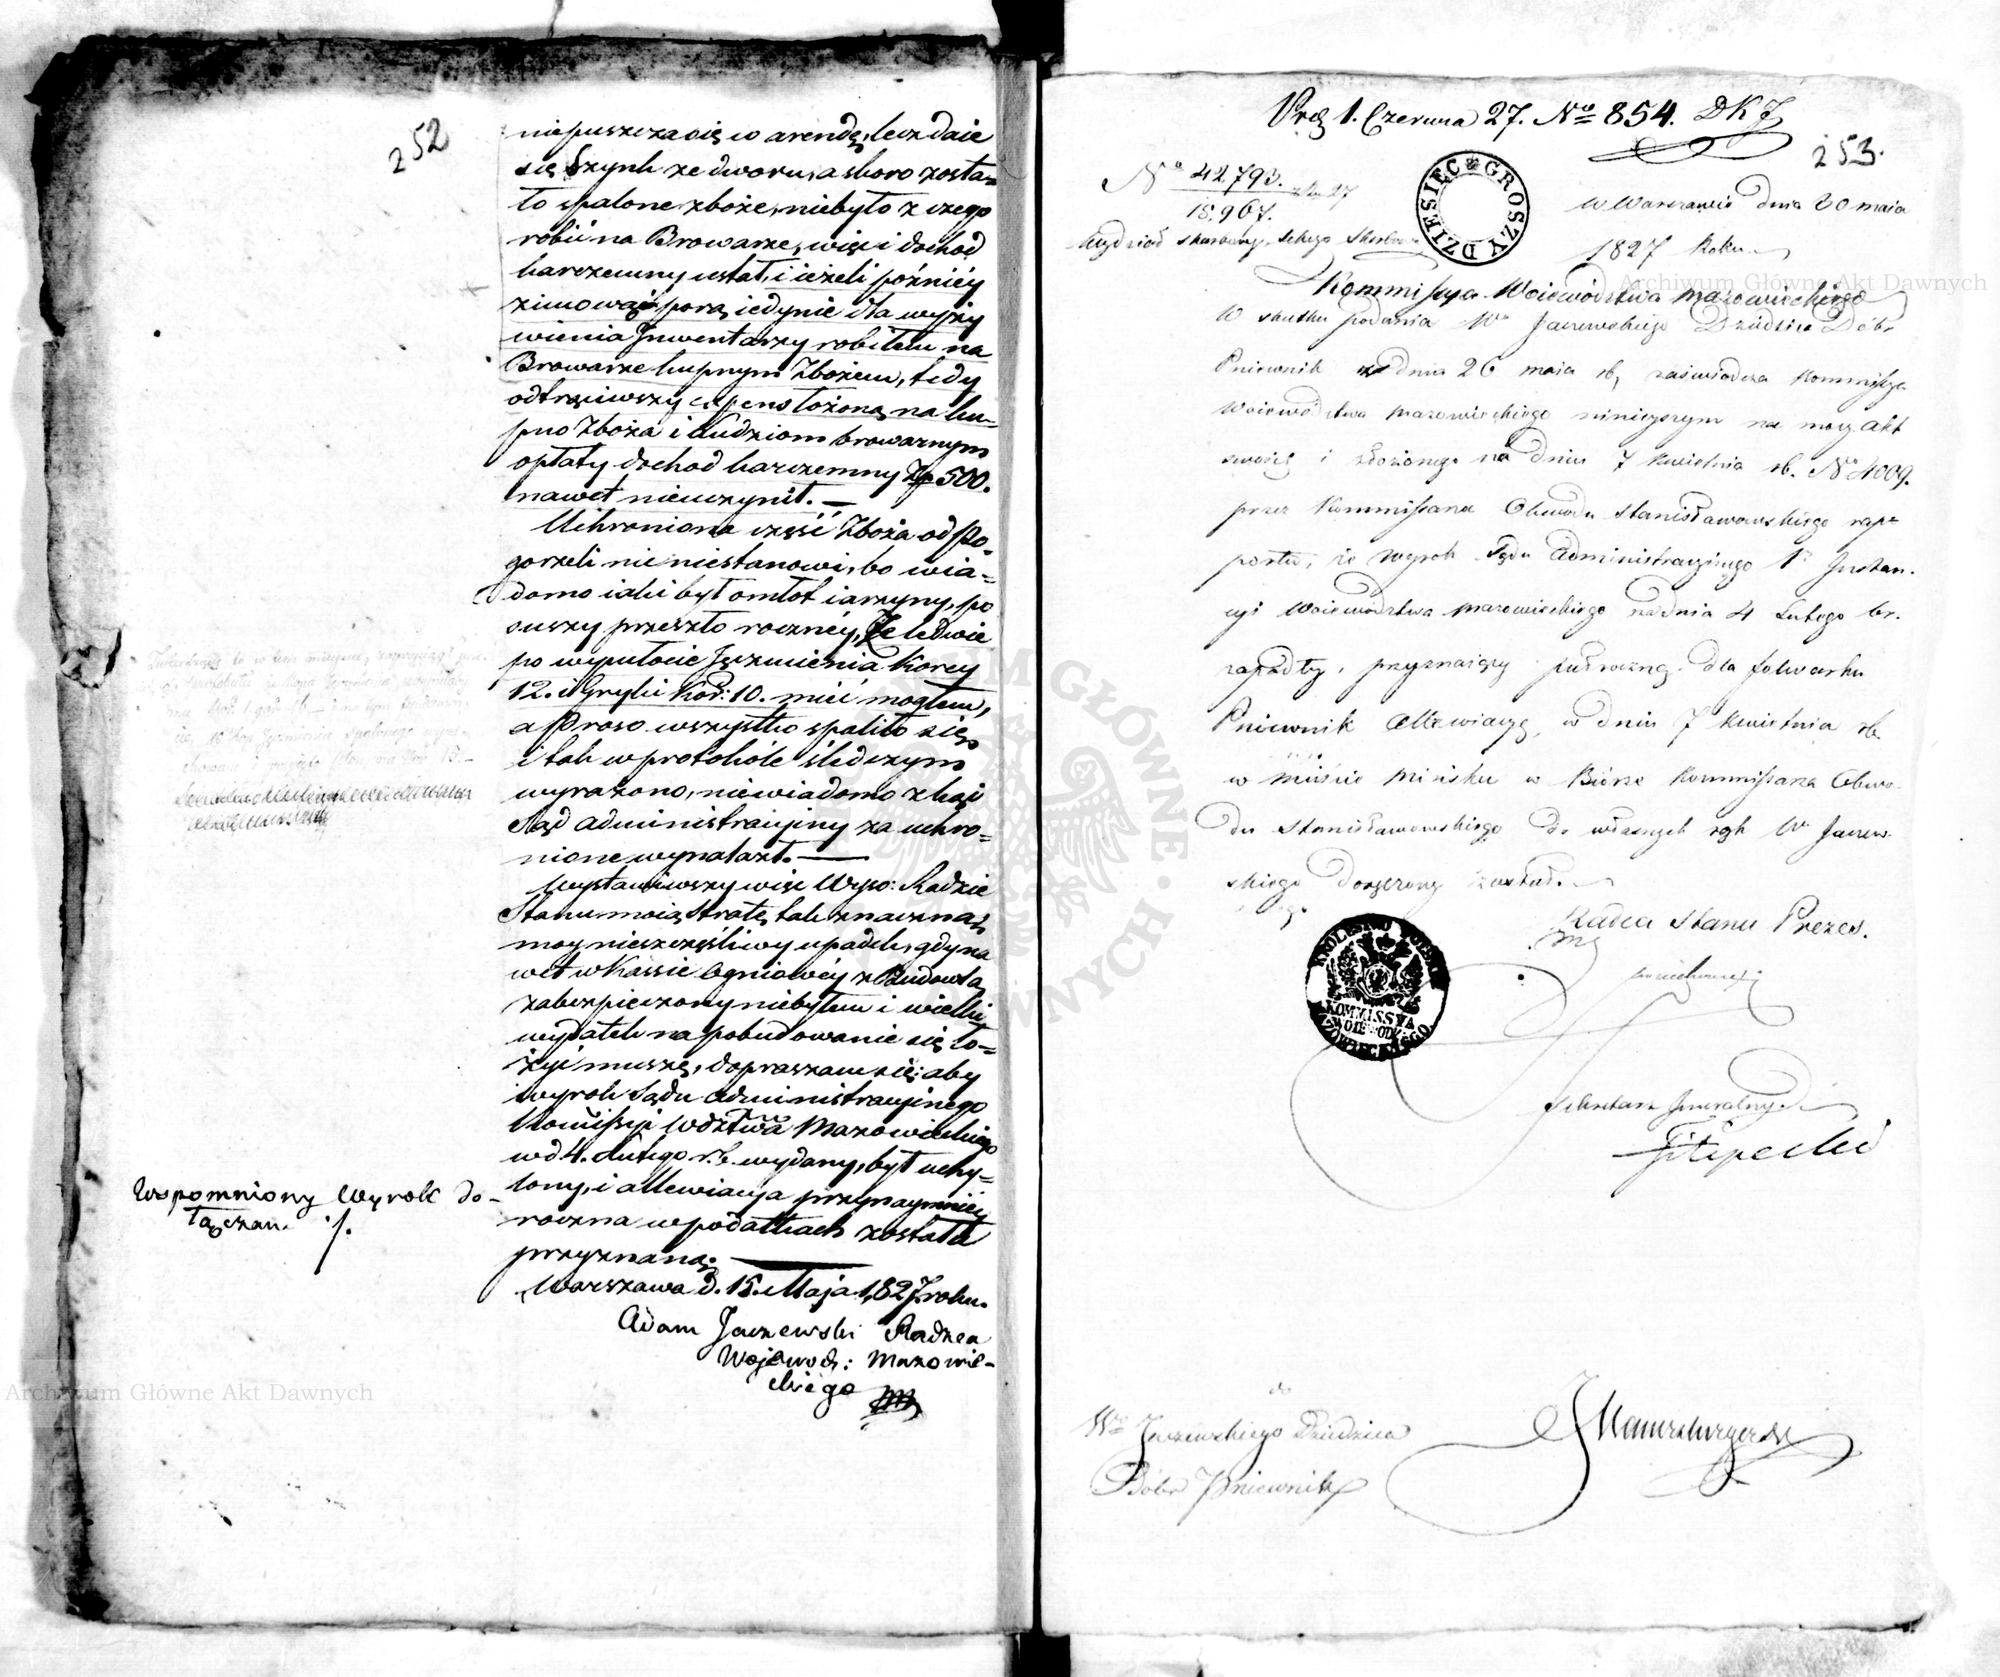 252
niepuszcza się w arendę, lecz daie
się Szynk ze dworu, a skoro zosta=
ło spalone zboże, niebyło z czego
robić na Browarze, więc i dochod
karczemny ustał, i ieżeli późniéy
zimową porą iedynie dla wyży
wienia Inwentarzy robiłem na
Browarze kupnym Zbożem, tedy
odtrąciwszy expens łożoną na ku-
pno Zboża i Ludziom browarnym
opłaty dochod karczemny Zp 500.
nawet nieuczynił. —
Uchroniona część Zboża od Po-
gorzeli nic niestanowi, bo wia-
domo iaki był omłot iarzyny, po
suszy przeszło rocznéy, Że ledwie
po wymłocie Jęczmienia Korcy
12. i Gryki Kor: 10. mieć mogłem,
a Proso wszystko spaliło się,
i tak w protokóle śledczym
wyrażono, niewiadomo zkąd
Sąd administracyiny za uchro-
nione wynalazł. —
Wystawiwszy więc Wyso: Radzie
Stanu moią stratę tak znaczną,
moy nieszczęśliwy upadek, gdy na
wet w Kassie Ogniowéy z Budowlą
zabezpieczony niebyłem i wielki
wydatek na pobudowanie się ło=
żyć muszę, dopraszam się: aby
wyrok Sądu administracyinego
Kommissyi Wdztwa Mazowieckiego
w d 4. Lutego r.b. wydany, był uchy-
lony, i allewiacya przynaymniéy
roczna w podatkach została
przyznaną. —
Warszawa d. 15. Maja 1827. roku.
Adam Jaczewski Radzca
Wojewod: Mazowie-
ckiego
Wspomniony Wyrok do-
łączam ./.
Prez 1. Czerwca 27. No 854. DKJ
253.
No 42.793.
15.967.
Wydział Skarbowy
DZIESIEC GROSZY
w Warszawie dnia 30 maia
1827 Roku
Kommissya Woiewództwa Mazowieckiego
W skutku podania Wo Jaczewskiego Dziedzica Dóbr
Pniewnik z dnia 26 maia rb, zaświadcza Kommissya
Woiewództwa Mazowieckiego ninieyszym na mocy Akt
swoich i złożonego na dniu 7 Kwietnia rb. No 4009.
przez Kommissarza Obwodu Stanisławowskiego rap=
portu, że wyrok Sądu Administracyinego 1 Instan-
cyi Woiewództwa Mazowieckiego na dniu 4 Lutego br.
zapadły, przyznaiący pułroczną dla folwarku
Pniewnik Allewiacyę, w dniu 7 Kwietnia rb.
w mieście Mińsku w Biórze Kommissarza Obwo-
du Stanisławowskiego do własnych rąk Wo Jaczew-
skiego doręczony został.
Radca Stanu Prezes.
KROLESTWO POLSKIE
KOMMISSYA
WOIEWODZ:
MAZOWIECKIEGO
Sekretarz Jeneralny
Filipecki
do
Wo Jaczewskiego Dziedzica
Dóbr Pniewnik
Archiwum Główne Akt Dawnych
Archiwum Główne Akt Dawnych